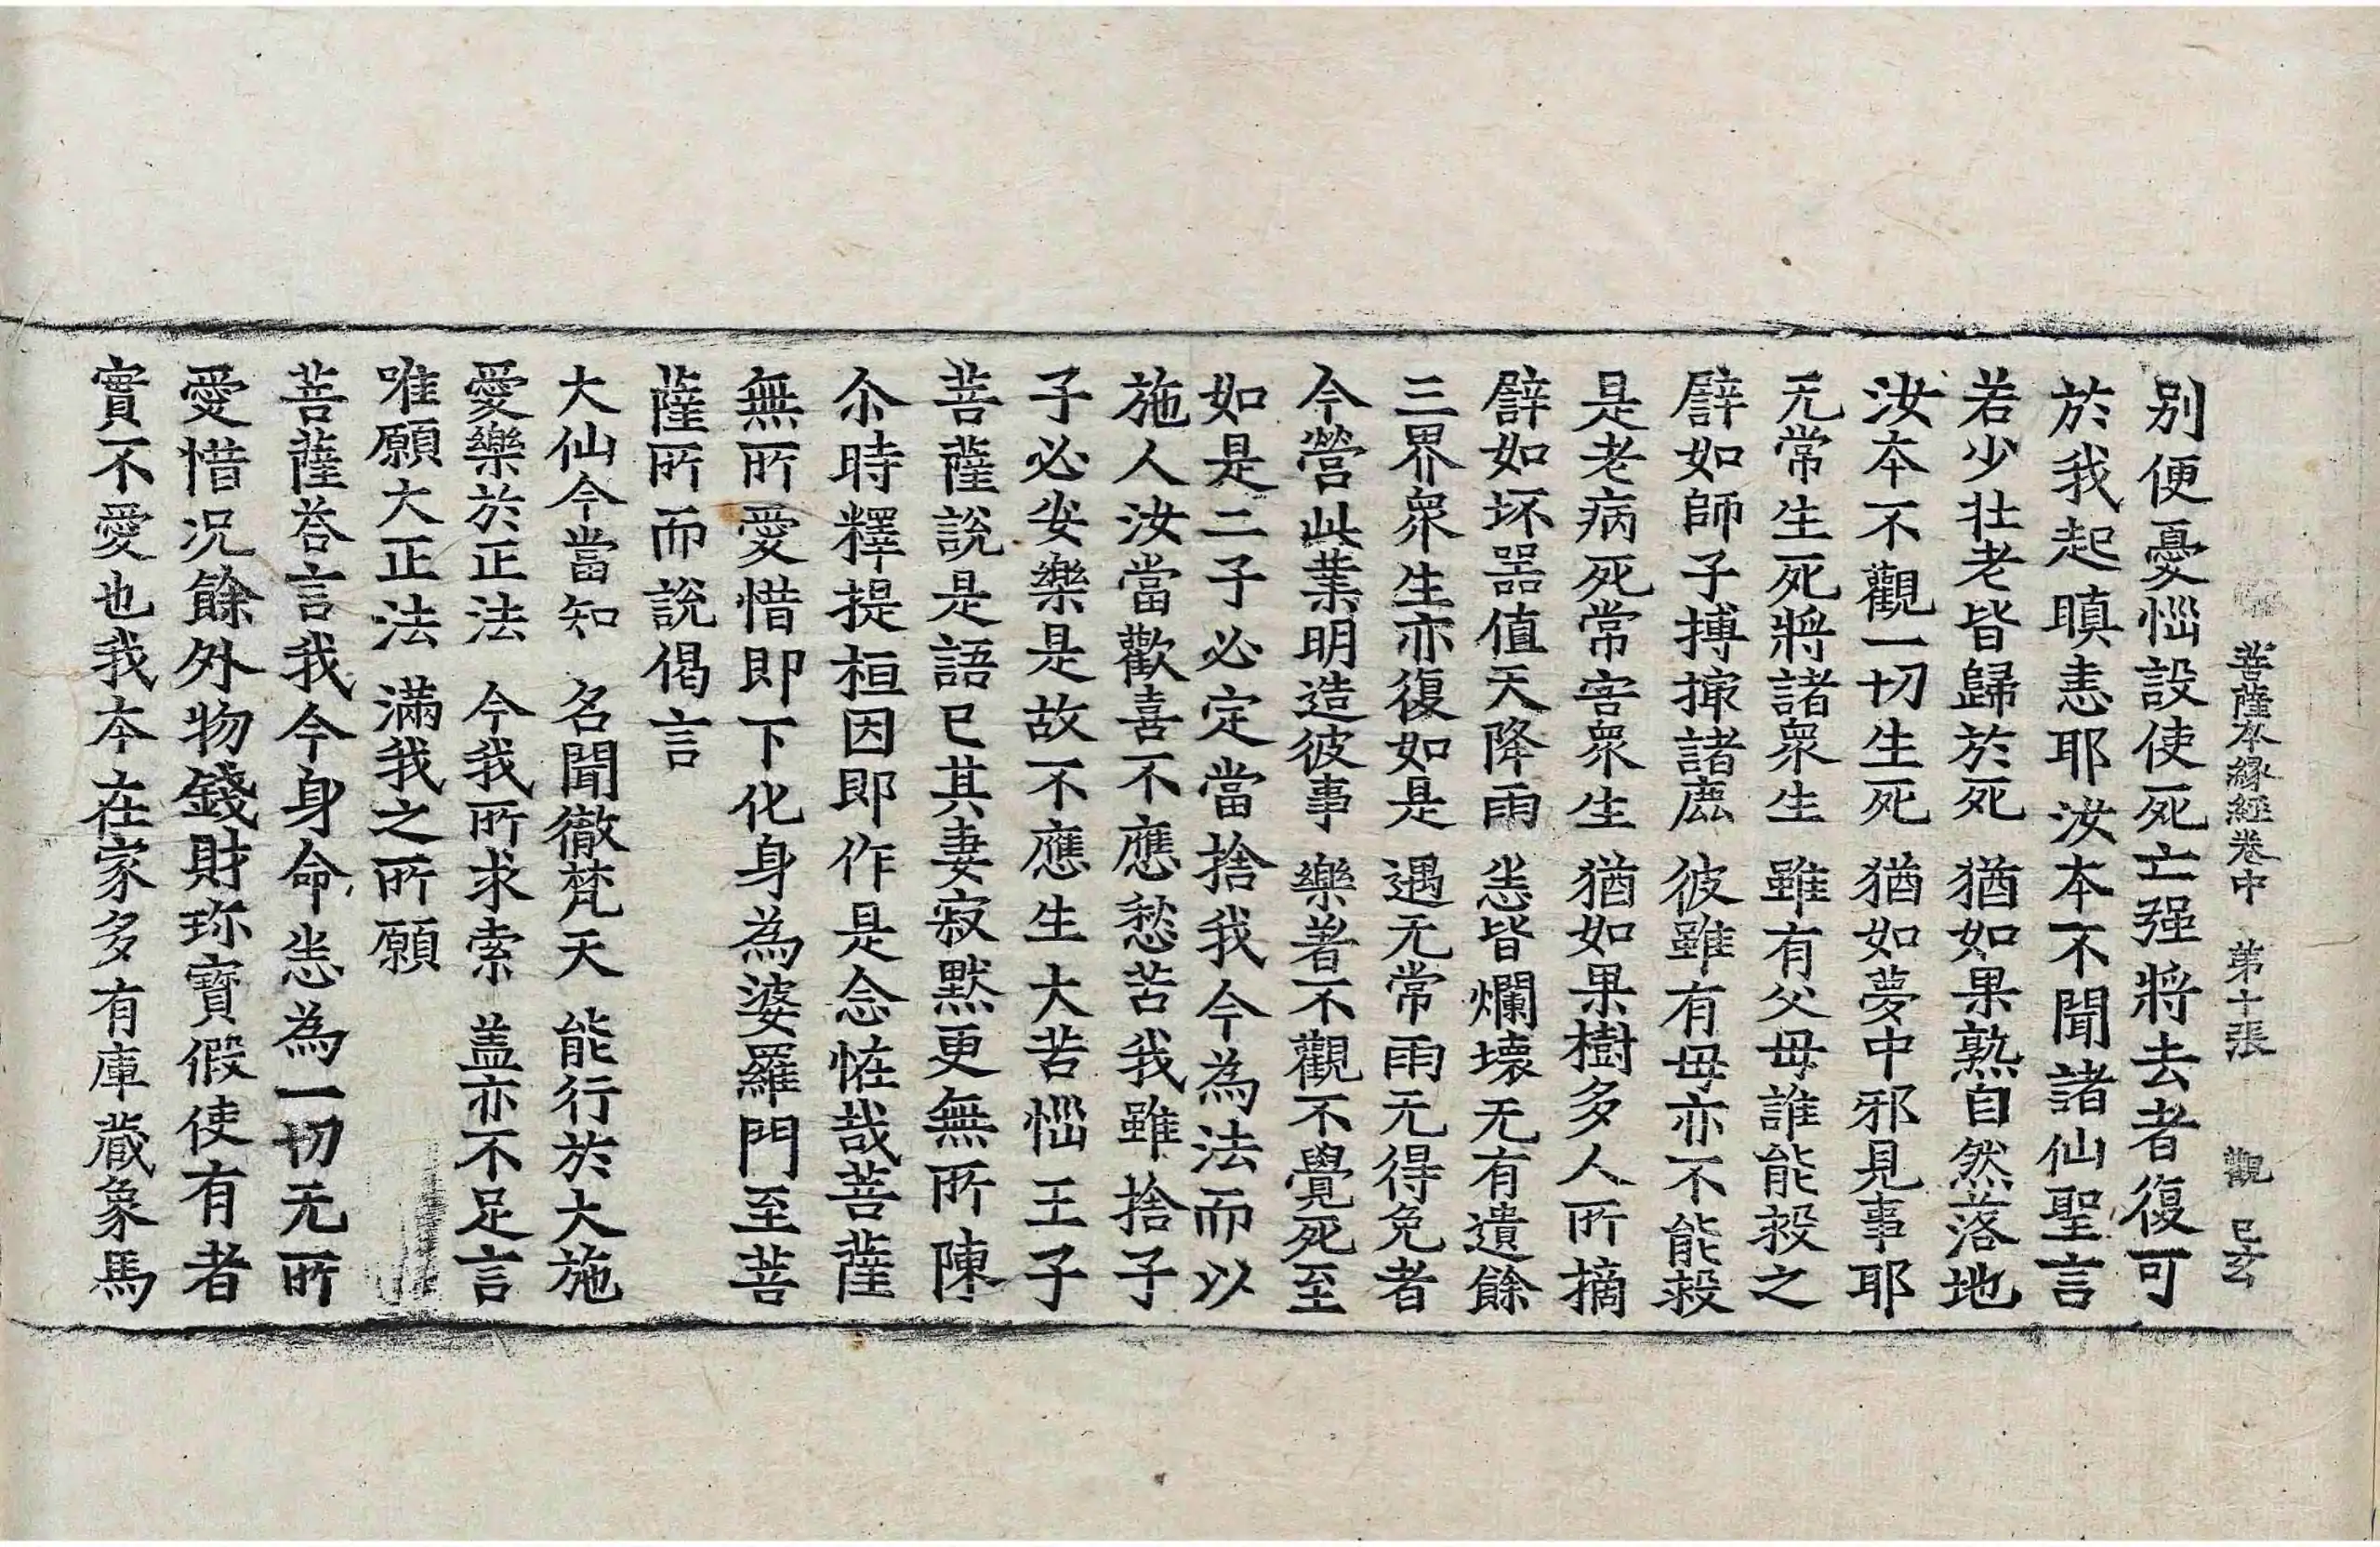 菩薩本緣經卷中 第十張 觀 已玄
別便憂惱設使死亡强將去者復可
於我起瞋恚耶汝本不聞諸仙聖言
若少壯老皆歸於死 猶如果熟自然落地
汝本不觀一切生死 猶如夢中邪見事耶
无常生死將諸衆生 雖有父母誰能救之
譬如師子搏撮諸鹿 彼雖有母亦不能救
是老病死常害衆生 猶如果樹多人所摘
譬如坏器值天降雨 悉皆爛壞无有遺餘
三界衆生亦復如是 遇无常雨无得免者
今營此業明造彼事 樂著不觀不覺死至
如是二子必定當捨我今為法而以
施人汝當歡喜不應愁苦我雖捨子
子必安樂是故不應生大苦惱王子
菩薩說是語已其妻寂默更無所陳
尒時釋提桓因即作是念恠哉菩薩
無所愛惜即下化身為婆羅門至菩
薩所而說偈言
大仙今當知 名聞徹梵天 能行於大施
愛樂於正法 今我所求索 盖亦不足言
唯願大正法 滿我之所願
菩薩荅言我今身命悉為一切无所
愛惜况餘外物錢財珎寶假使有者
實不愛也我本在家多有庫藏象馬